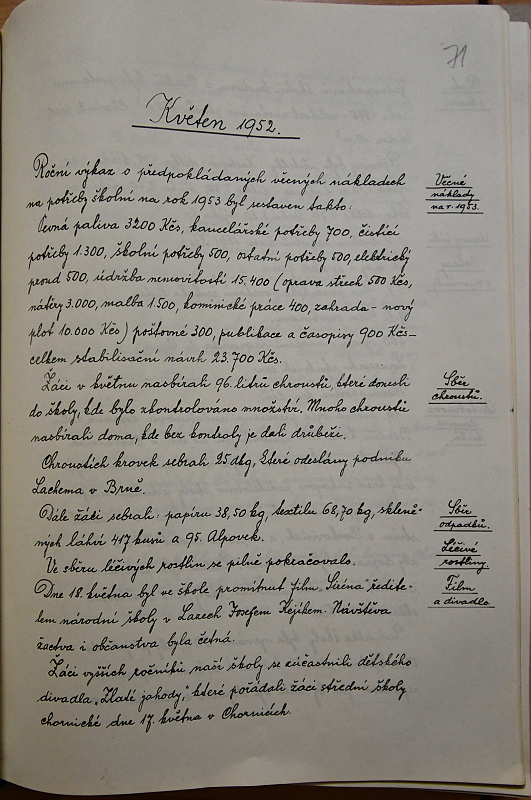 71
Květen 1952.
Roční výkaz o předpokládaných věcných nákladech
na potřeby školní na rok 1953 byl sestaven takto:
Pevná paliva 3200 Kčs, kancelářské potřeby 700, čistící
potřeby 1.300, školní potřeby 500, ostatní potřeby 500, elektrický
proud 500, údržba nemovitostí 15.400 (oprava střech 500 Kčs,
nátěry 3.000, malba 1.500, kominické práce 400, zahrada - nový
plot 10.000 Kčs) poštovné 300, publikace a časopisy 900 Kčs -
celkem stabilisační návrh 23.700 Kčs.
Věcné
náklady
na r. 1953.
Žáci v květnu nasbírali 96 litrů chroustů, které donesli
do školy, kde bylo zkontrolováno množství. Mnoho chroustů
nasbírali doma, kde bez kontroly je dali drůbeži.
Chroustích krovek sebrali 25 dkg, které odeslány podniku
Lachema v Brně.
Sběr
chroustů.
Dále žáci sebrali: papíru 38,50 kg, textilu 68,70 kg, skleně-
ných láhví 417 kusů a 95 Alpovek.
Sběr
odpadků.
Ve sběru léčivých rostlin se pilně pokračovalo.
Léčivé
rostliny.
Dne 18. května byl ve škole promítnut film „Siréna" ředite-
lem národní školy v Lazech Josefem Kejíkem. Návštěva
žactva i občanstva byla četná.
Film
a divadlo
Žáci vyšších ročníků naší školy se zúčastnili dětského
divadla „Zlaté jahody," které pořádali žáci střední školy
chornické dne 17. května v Chornicích.